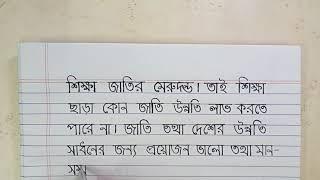 শিক্ষা জাতির মেরুদন্ড। তাই শিক্ষা
ছাড়া কোন জাতি উন্নতি লাভ করতে
পারে না। জাতি তথা দেশের উন্নতি
সাধনের জন্য প্রয়োজন ভালো তথা মান-
সম্ম